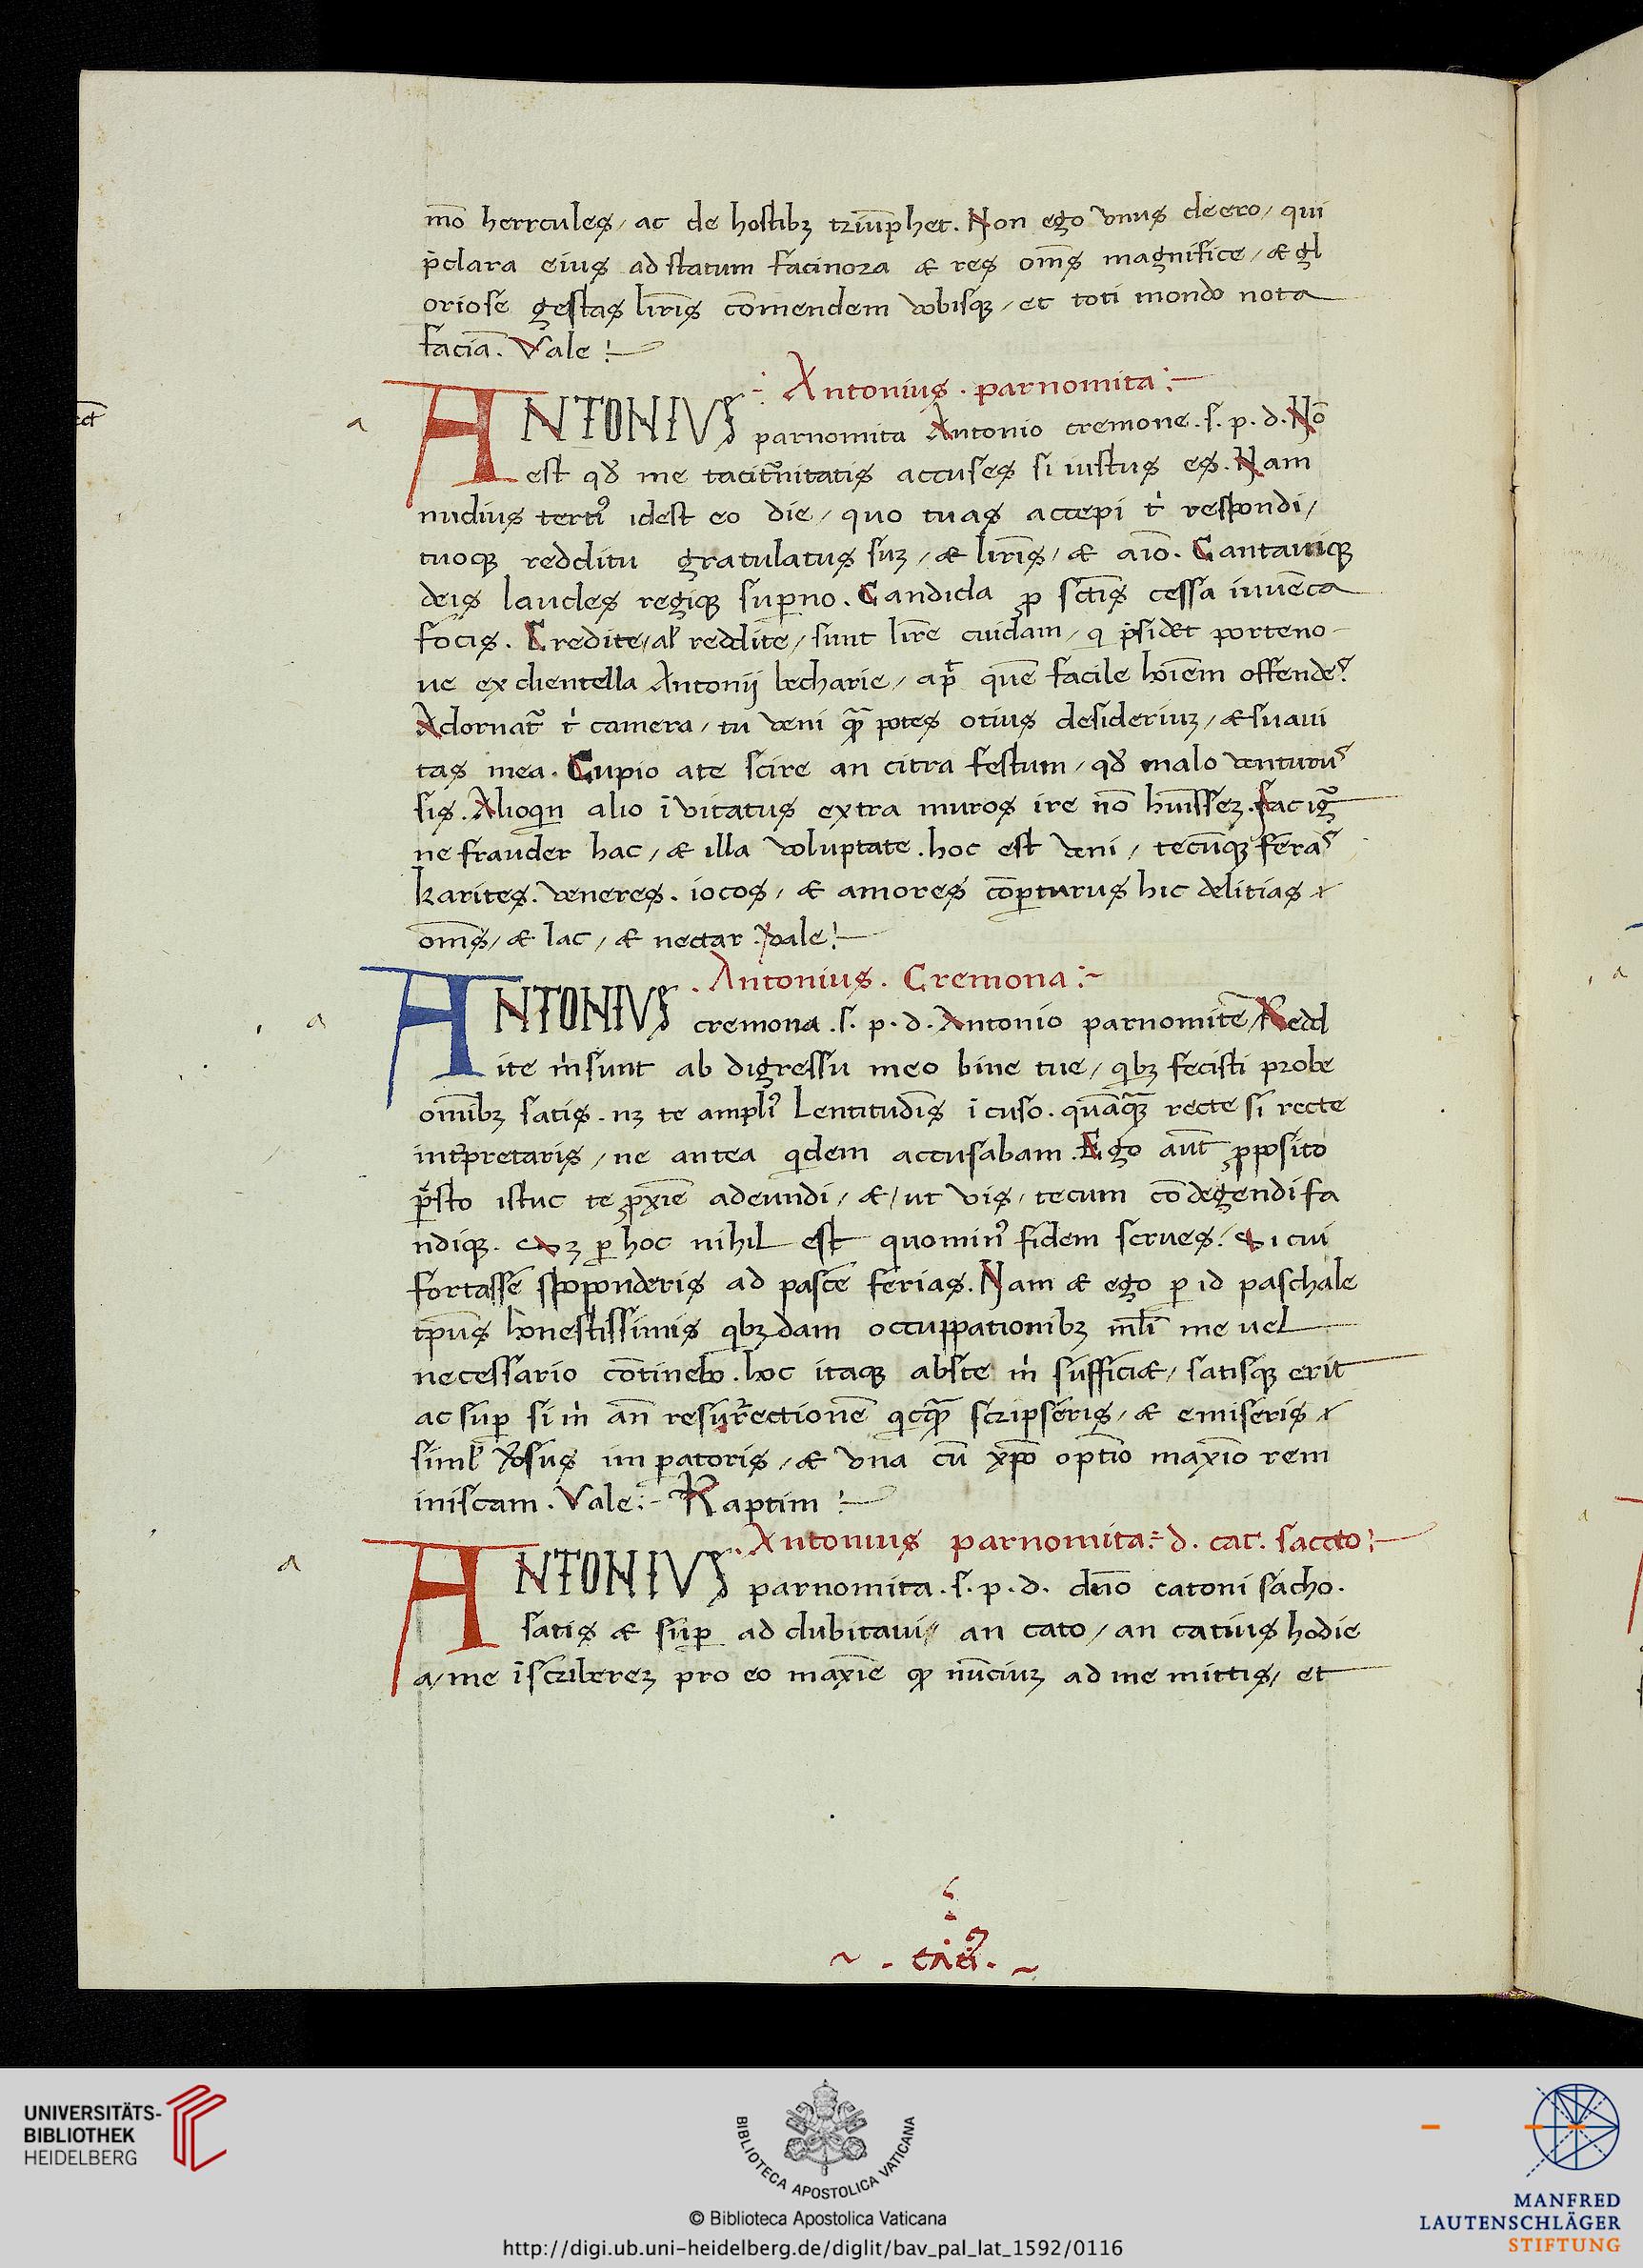 mō herrcules / ac de hostibꝫ triūphet. Non ego vnus deero / qui
p̄clara eius ad statum facinora & res om̄s magnifice / & gl
oriose gestas lr̄is cōmendem vobisqꝫ / et toti mondo nota
faciā. Vale :
Antonius . parnomita :
a
ANTONIVS parnomita Antonio cremone . s . p . d . Nō
est qđ me taciturnitatis accuses si iustus es . Nam
nudius tertiꝰ idest eo die / quo tuas accepi tⁱ respondi /
tuoqꝫ redditu gratulatus suꝫ / & lr̄is / & aīo . Cantauiqꝫ
deis laudes regiqꝫ superno . Candida ꝓ sctīs cessa iuuēca
focis . Credite / al' reddite / sunt lr̄e cuidam / qi p̄sidet porteno
ue ex clientella Antonij becharie / apᵈ quē facile hoīem offendes
Adornatᵉ tⁱ camera / tu veni quā potes otius desideriuꝫ / & suaui
tas mea . Cupio a te scire an citra festum / qđ malo venturus
sis . Alioqⁱn alio īvitatus extra muros ire nō huissēꝫ . fac igʳ
ne frauder hac / & illa voluptate . hoc est veni / tecūqꝫ feras
karites . veneres . iocos / & amores cōperturus hic delitias
om̄s / & lac / & nectar . vale :
Antonius . Cremona :
a
ANTONIVS cremona . s . p . d . Antonio parnomite / Redd
ite mⁱ sunt ab digressu meo bine tue / qⁱbꝫ fecisti probe
omībꝫ satis . nꝫ te ampliꝰ lentitudīs īcuso . quāquā recte si recte
int'pretaris / ne antea qⁱdem accusabam . Ego aut̄ ꝓposito
p̄sto istuc te ꝓxīe adeundi / & / ut vis / tecum cōdegendi fa
ndiqꝫ . Sꝫ ꝑ hoc nihil est quominꝰ fidem serues / Si cui
fortasse spoponderis ad pasce ferias . Nam & ego ꝑ id paschale
tp̄us honestissimis qⁱbꝫdam occuppationibꝫ ml̄i me uel
necessario cōtinebo . hoc itaqꝫ abste mⁱ sufficiet / satisqꝫ erit
ac suꝑ si mⁱ an̄ resurrectionē qⁱcquā scripseris / & emiseris
simul v̓sus imꝑatoris / & vna cū xp̄o optīo maxīo rem
iniscam . Vale : Raptim :
Antonius parnomita : d . cat . sacco :
a
ANTONIVS parnomita . s . p . d . dn̄o catoni sacho .
satis & suꝑ addubitaui / an cato / an catius hodie
a / me īscribereꝫ pro eo maxīe qꝫ nūciuꝫ ad me mittis / et
UNIVERSITÄTS-
BIBLIOTHEK
HEIDELBERG
BIBLIOTECA APOSTOLICA VATICANA
© Biblioteca Apostolica Vaticana
http://digi.ub.uni-heidelberg.de/diglit/bav_pal_lat_1592/0116
MANFRED
LAUTENSCHLÄGER
STIFTUNG